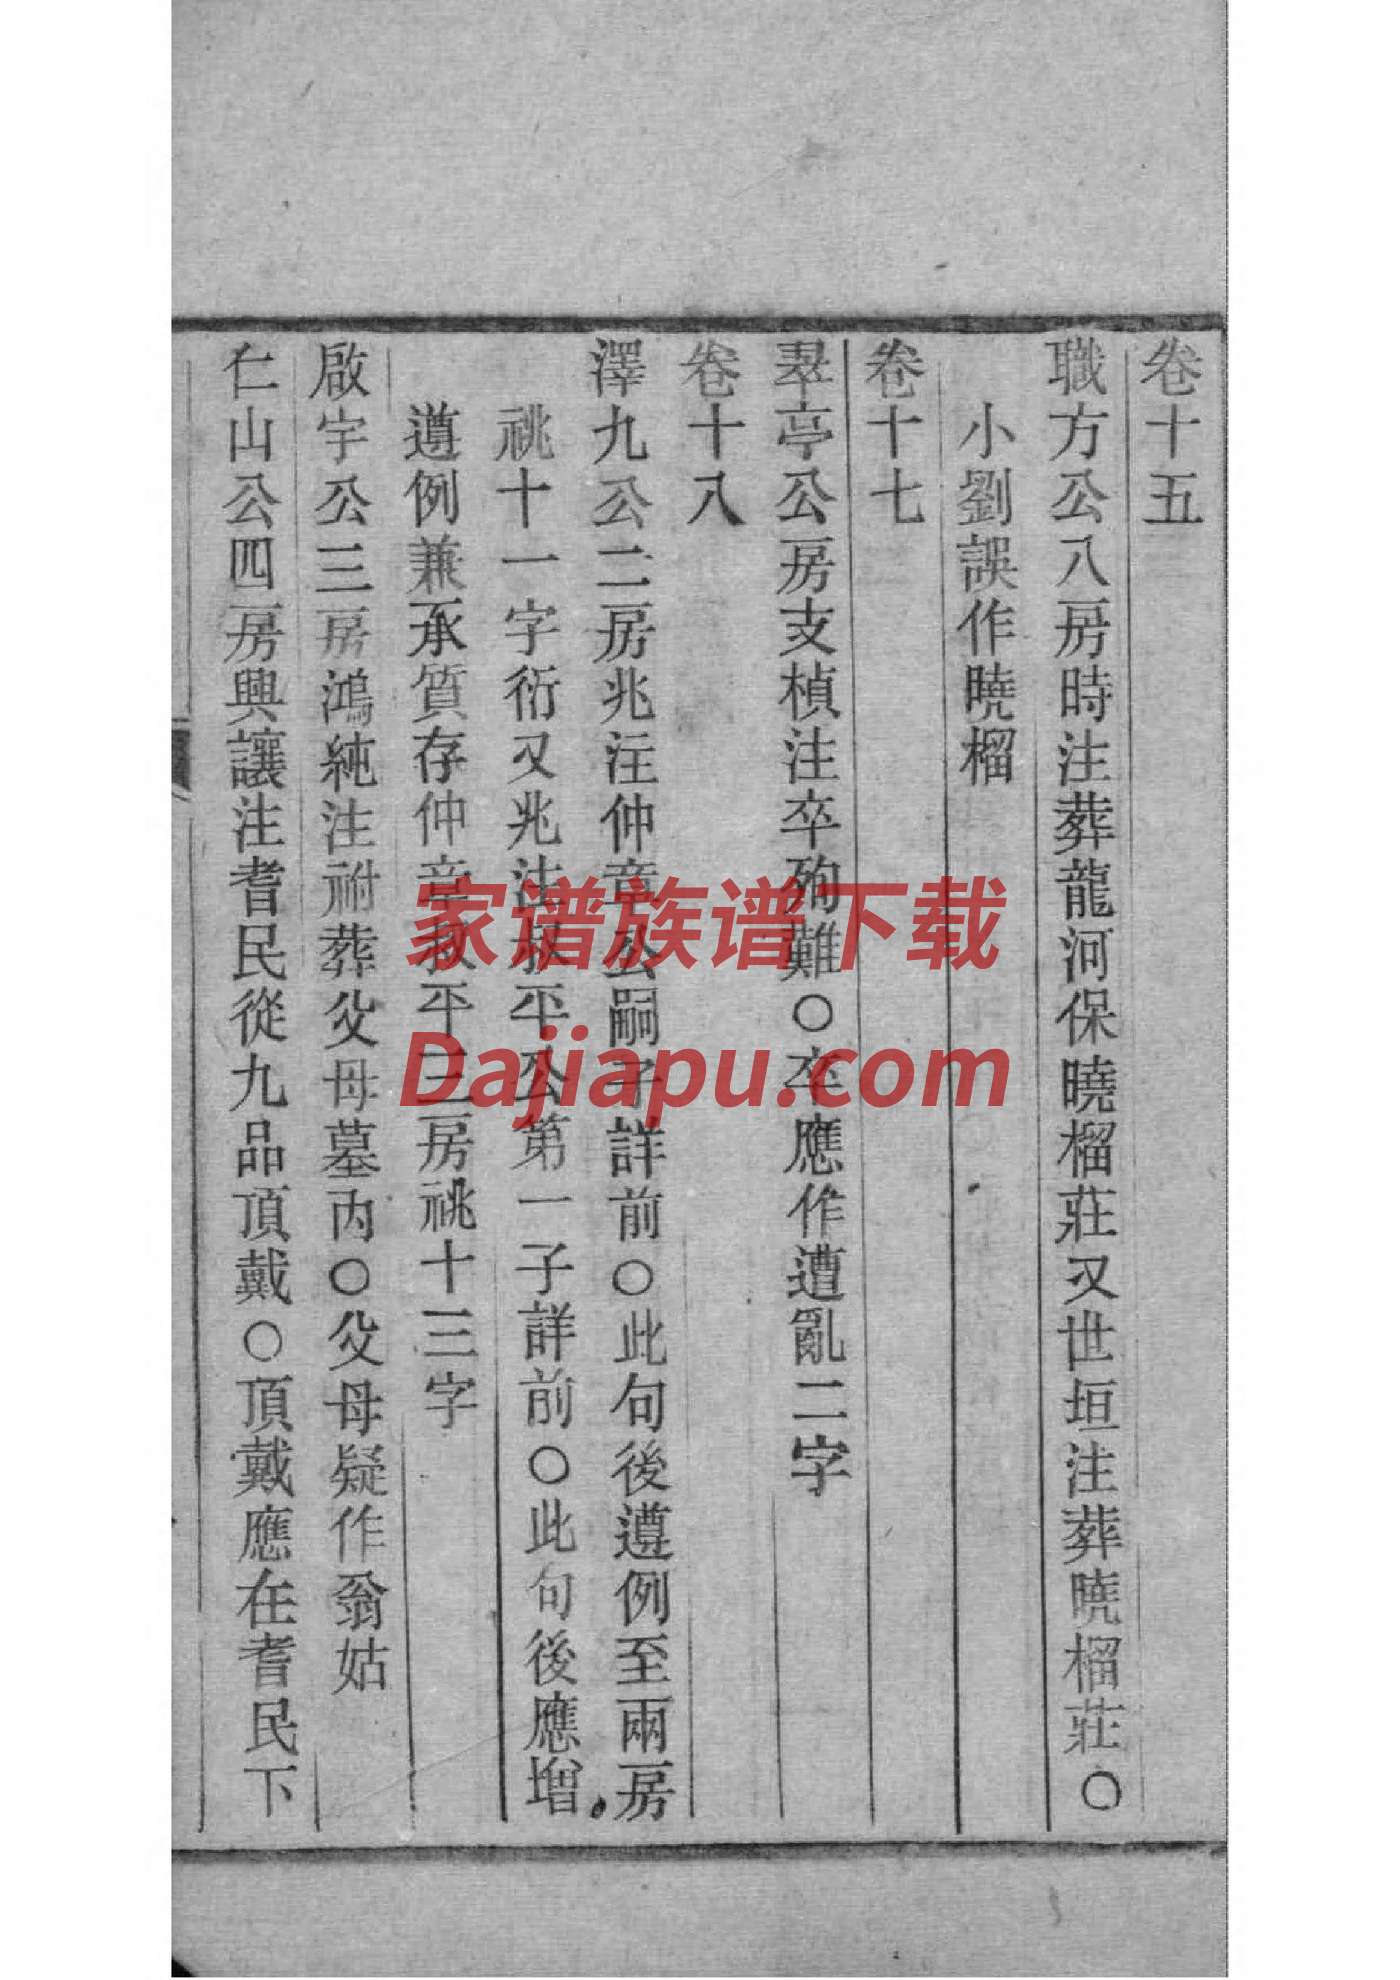 卷十五
職方公八房時注葬龍河保曉橊莊又世垣注葬曉橊莊〇
小劉誤作曉橊
卷十七
翠亭公房支楨注卒殉難〇卒應作遭亂二字
卷十八
澤九公二房兆注仲章公嗣子詳前〇此句後遵例至兩房
祧十一字衍又兆注叔平公第一子詳前〇此句後應增
遵例兼承質存仲章叔平三房祧十三字
啟宇公三房鴻純注祔葬父母墓內〇父母疑作翁姑
仁山公四房興讓注耆民從九品頂戴〇頂戴應在耆民下
家谱族谱下载
Dajiapu.com